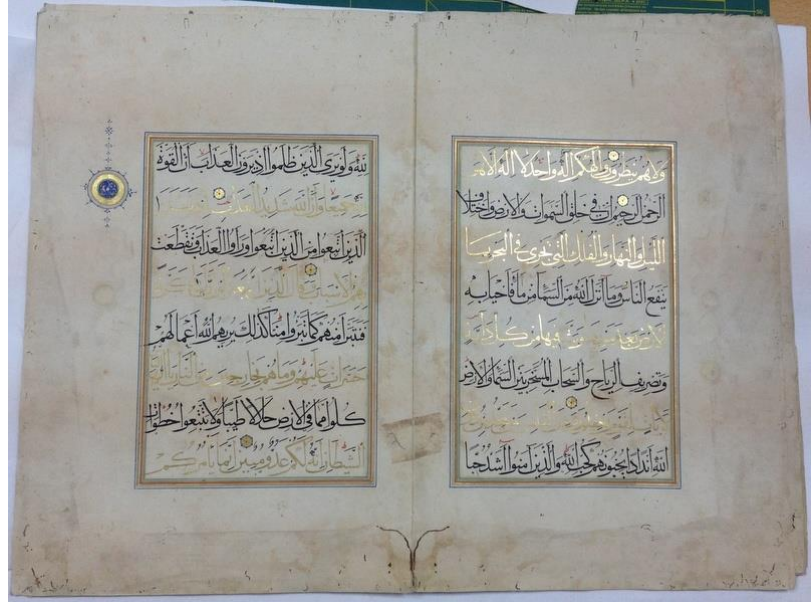 ولا هم ينظرون والهكم اله واحد لا اله الا هو
الرحمن الرحيم ان في خلق السموات والارض واختلاف
الليل والنهار والفلك التي تجري في البحر بما
ينفع الناس وما انزل الله من السماء من ماء فاحيا به
الارض بعد موتها وبث فيها من كل دابة
وتصريف الرياح والسحاب المسخر بين السماء والارض
لآيات لقوم يعقلون ومن الناس من يتخذ من دون
الله اندادا يحبونهم كحب الله والذين امنوا اشد حبا
لله ولو يرى الذين ظلموا اذ يرون العذاب ان القوة
لله جميعا وان الله شديد العذاب اذ تبرا
الذين اتبعوا من الذين اتبعوا وراوا العذاب وتقطعت
بهم الاسباب وقال الذين اتبعوا لو ان لنا كرة
فنتبرا منهم كما تبروا منا كذلك يريهم الله اعمالهم
حسرات عليهم وما هم بخارجين من النار يا ايها الناس
كلوا مما في الارض حلالا طيبا ولا تتبعوا خطوات
الشيطان انه لكم عدو مبين انما يامركم